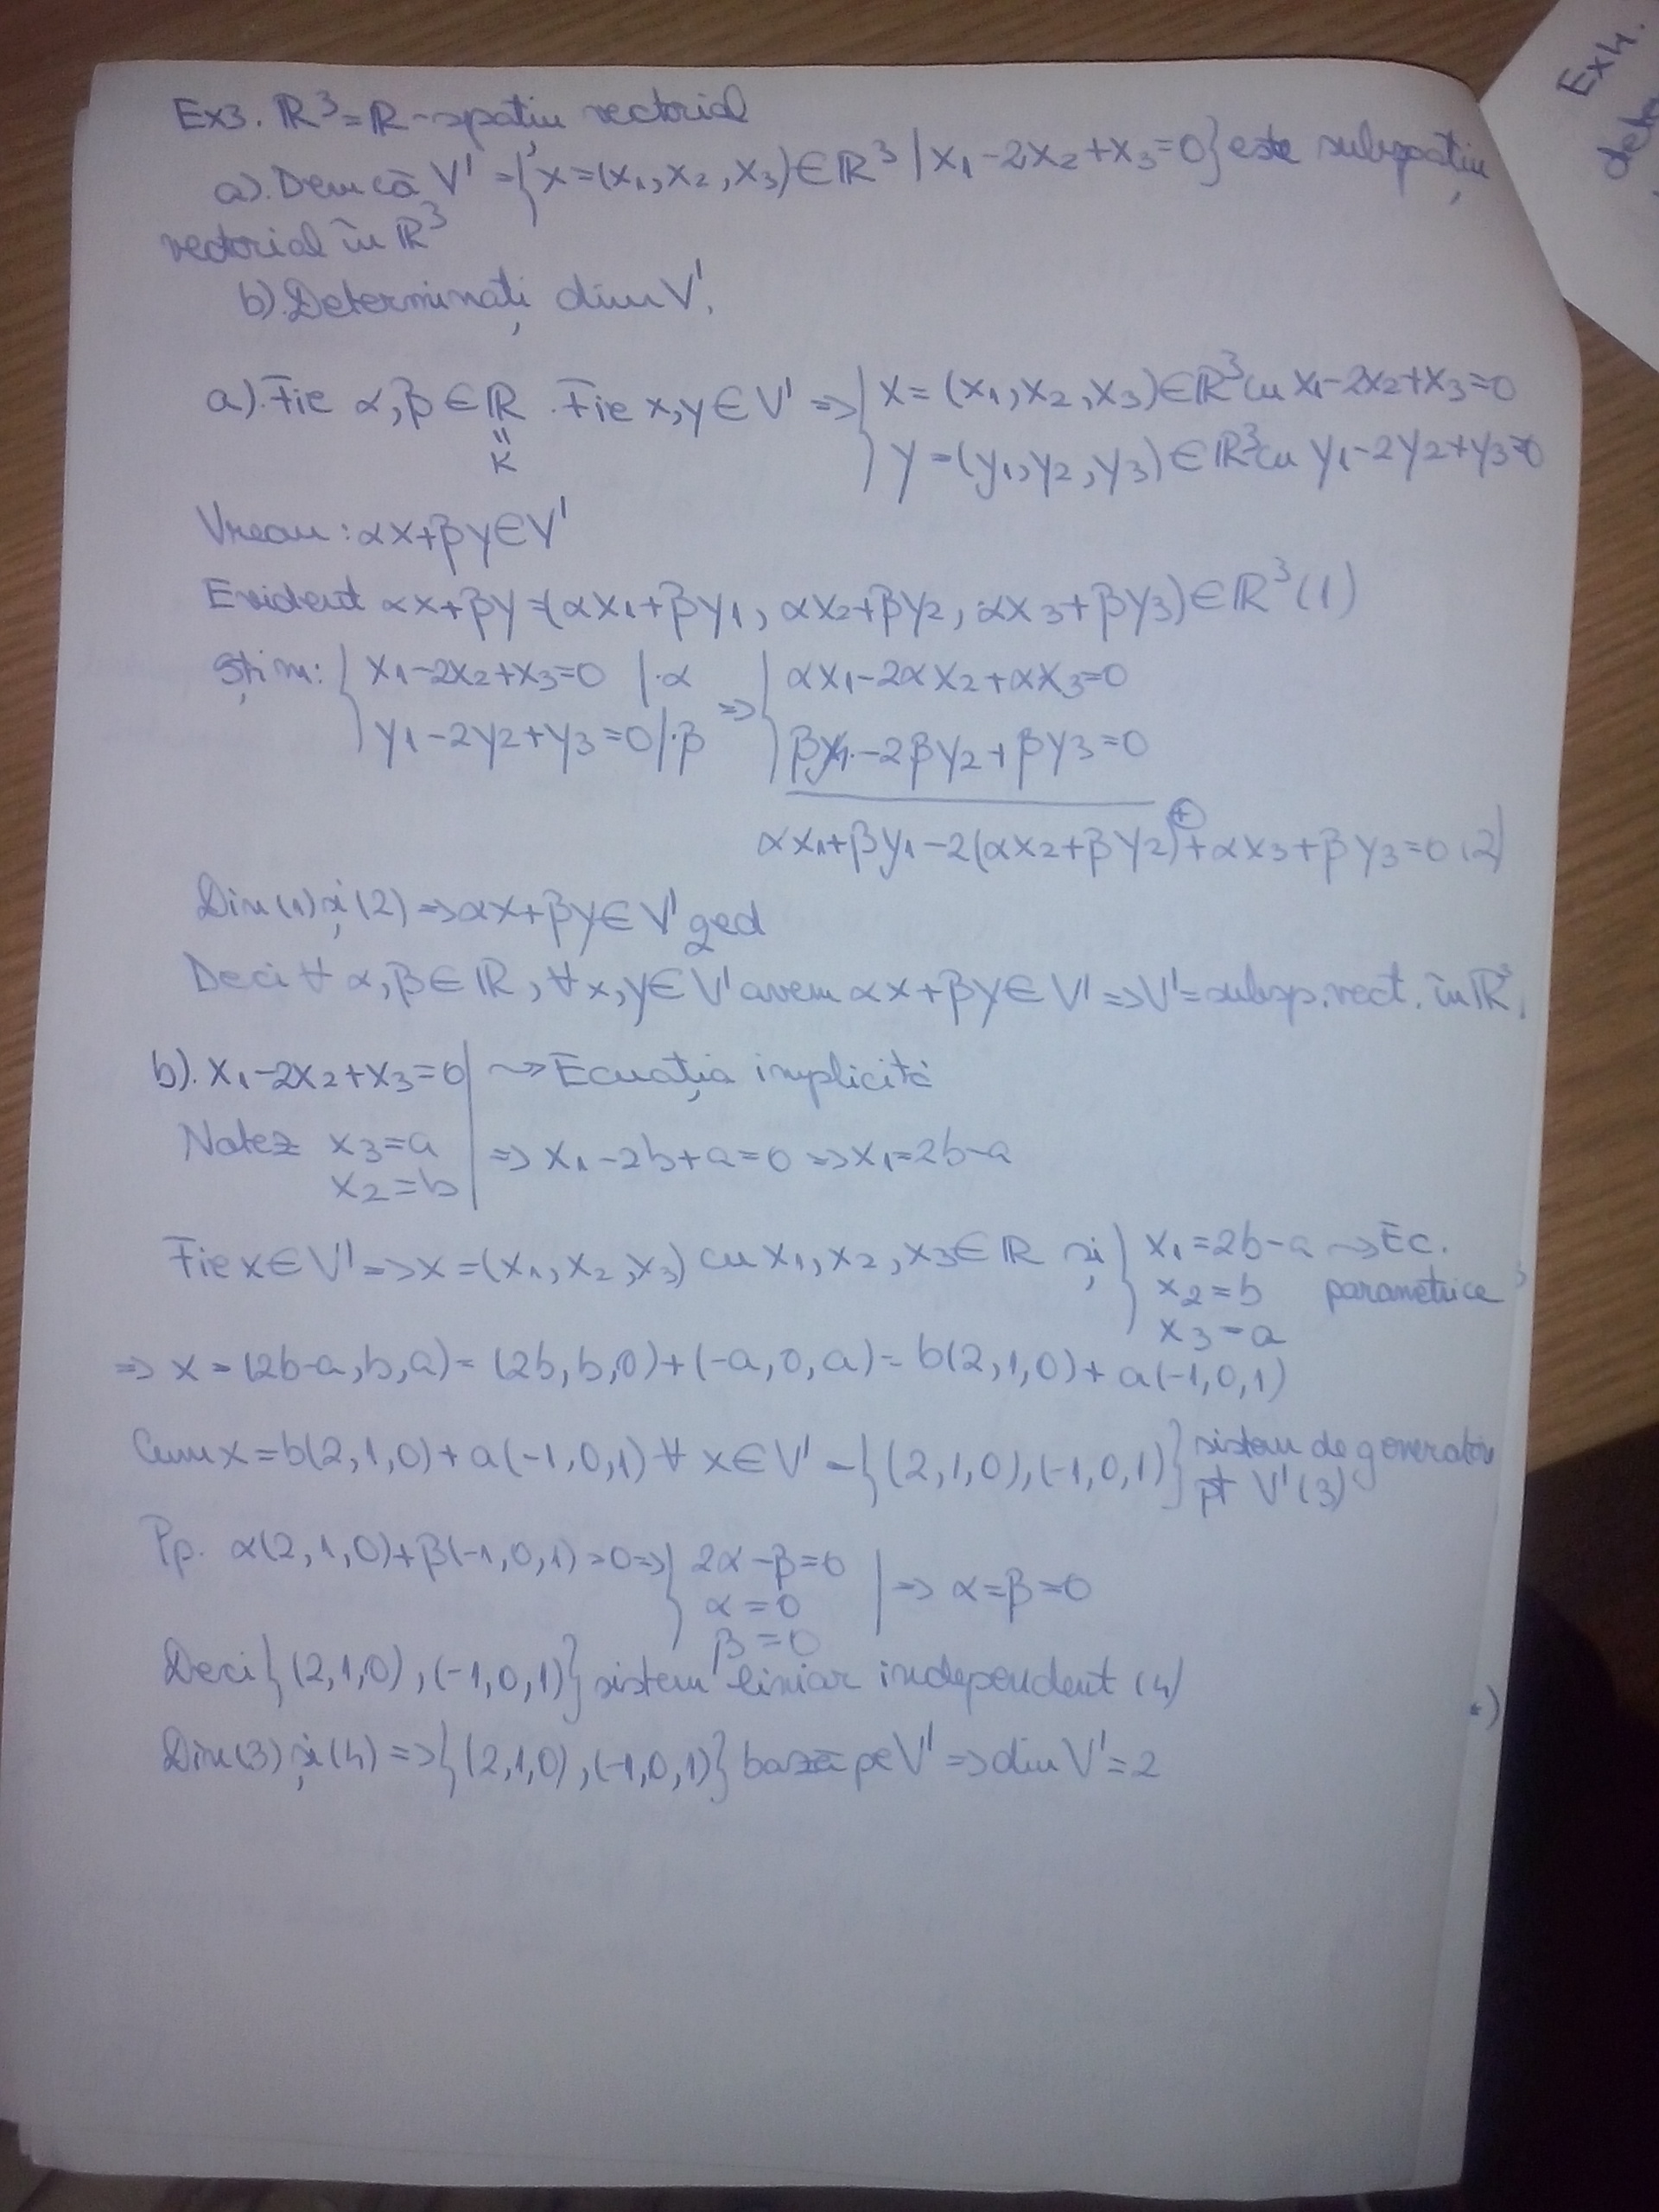 Ex3. ℝ³=ℝ-spațiu vectorial
a). Dem că V' = {x=(x₁,x₂,x₃)∈ℝ³ | x₁-2x₂+x₃=0} este subspațiu
vectorial în ℝ³
b). Determinați dim V'.
a). Fie α,β∈ℝ. Fie x,y∈V' => { x=(x₁,x₂,x₃)∈ℝ³ cu x₁-2x₂+x₃=0
y=(y₁,y₂,y₃)∈ℝ³ cu y₁-2y₂+y₃=0
"
K
Vreau: αx+βy∈V'
Evident αx+βy=(αx₁+βy₁, αx₂+βy₂, αx₃+βy₃)∈ℝ³ (1)
Știm: { x₁-2x₂+x₃=0 |·α => { αx₁-2αx₂+αx₃=0
y₁-2y₂+y₃=0 |·β βy₁-2βy₂+βy₃=0
⊕
αx₁+βy₁-2(αx₂+βy₂)+αx₃+βy₃=0 (2)
Din (1) și (2) => αx+βy∈V' qed
Deci ∀ α,β∈ℝ, ∀ x,y∈V' avem αx+βy∈V' => V'=subsp. vect. în ℝ³.
b). x₁-2x₂+x₃=0 | ~> Ecuația implicită
Notez x₃=a | => x₁-2b+a=0 => x₁=2b-a
x₂=b
Fie x∈V' => x=(x₁,x₂,x₃) cu x₁,x₂,x₃∈ℝ și { x₁=2b-a ~> Ec.
x₂=b parametrice
x₃=a
=> x=(2b-a,b,a)=(2b,b,0)+(-a,0,a)=b(2,1,0)+a(-1,0,1)
Cum x=b(2,1,0)+a(-1,0,1) ∀ x∈V' - {(2,1,0),(-1,0,1)} sistem de generatori
pt V' (3)
Pp. α(2,1,0)+β(-1,0,1)=0 => { 2α-β=0 | => α=β=0
α=0
β=0
Deci {(2,1,0),(-1,0,1)} sistem liniar independent (4)
Din (3) și (4) => {(2,1,0),(-1,0,1)} bază pe V' => dim V'=2
Ex4.